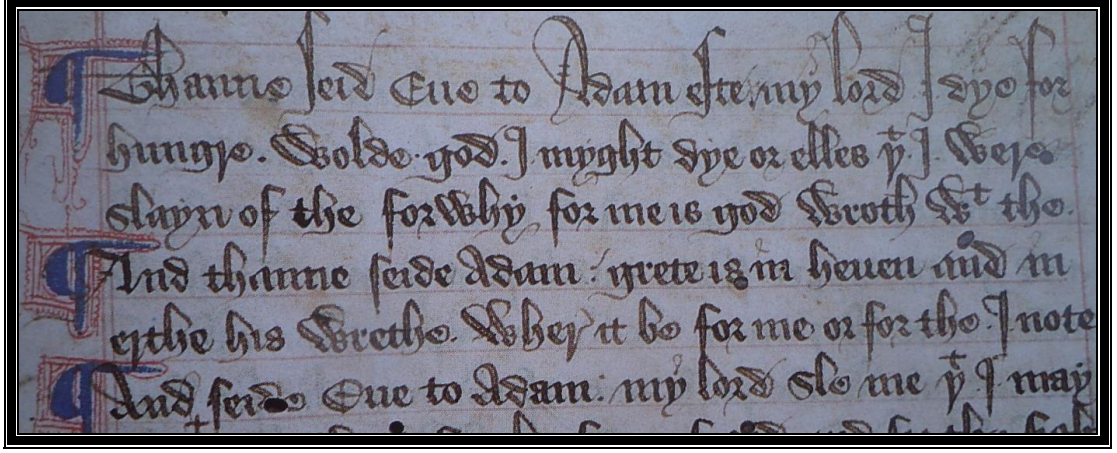 ¶ Thanne seid Eue to Adam efte my lord I dye for
hungre. Wolde god. I myght dye or elles þᵗ. I. Were
slayn of the forwhy for me is god Wroth Wᵗ the.
¶ And thanne seide Adam: grete is in heuen and in
erthe his Wrethe. Wher it be for me or for the. I note
¶ And seide Eue to Adam: my lord sle me þᵗ I may